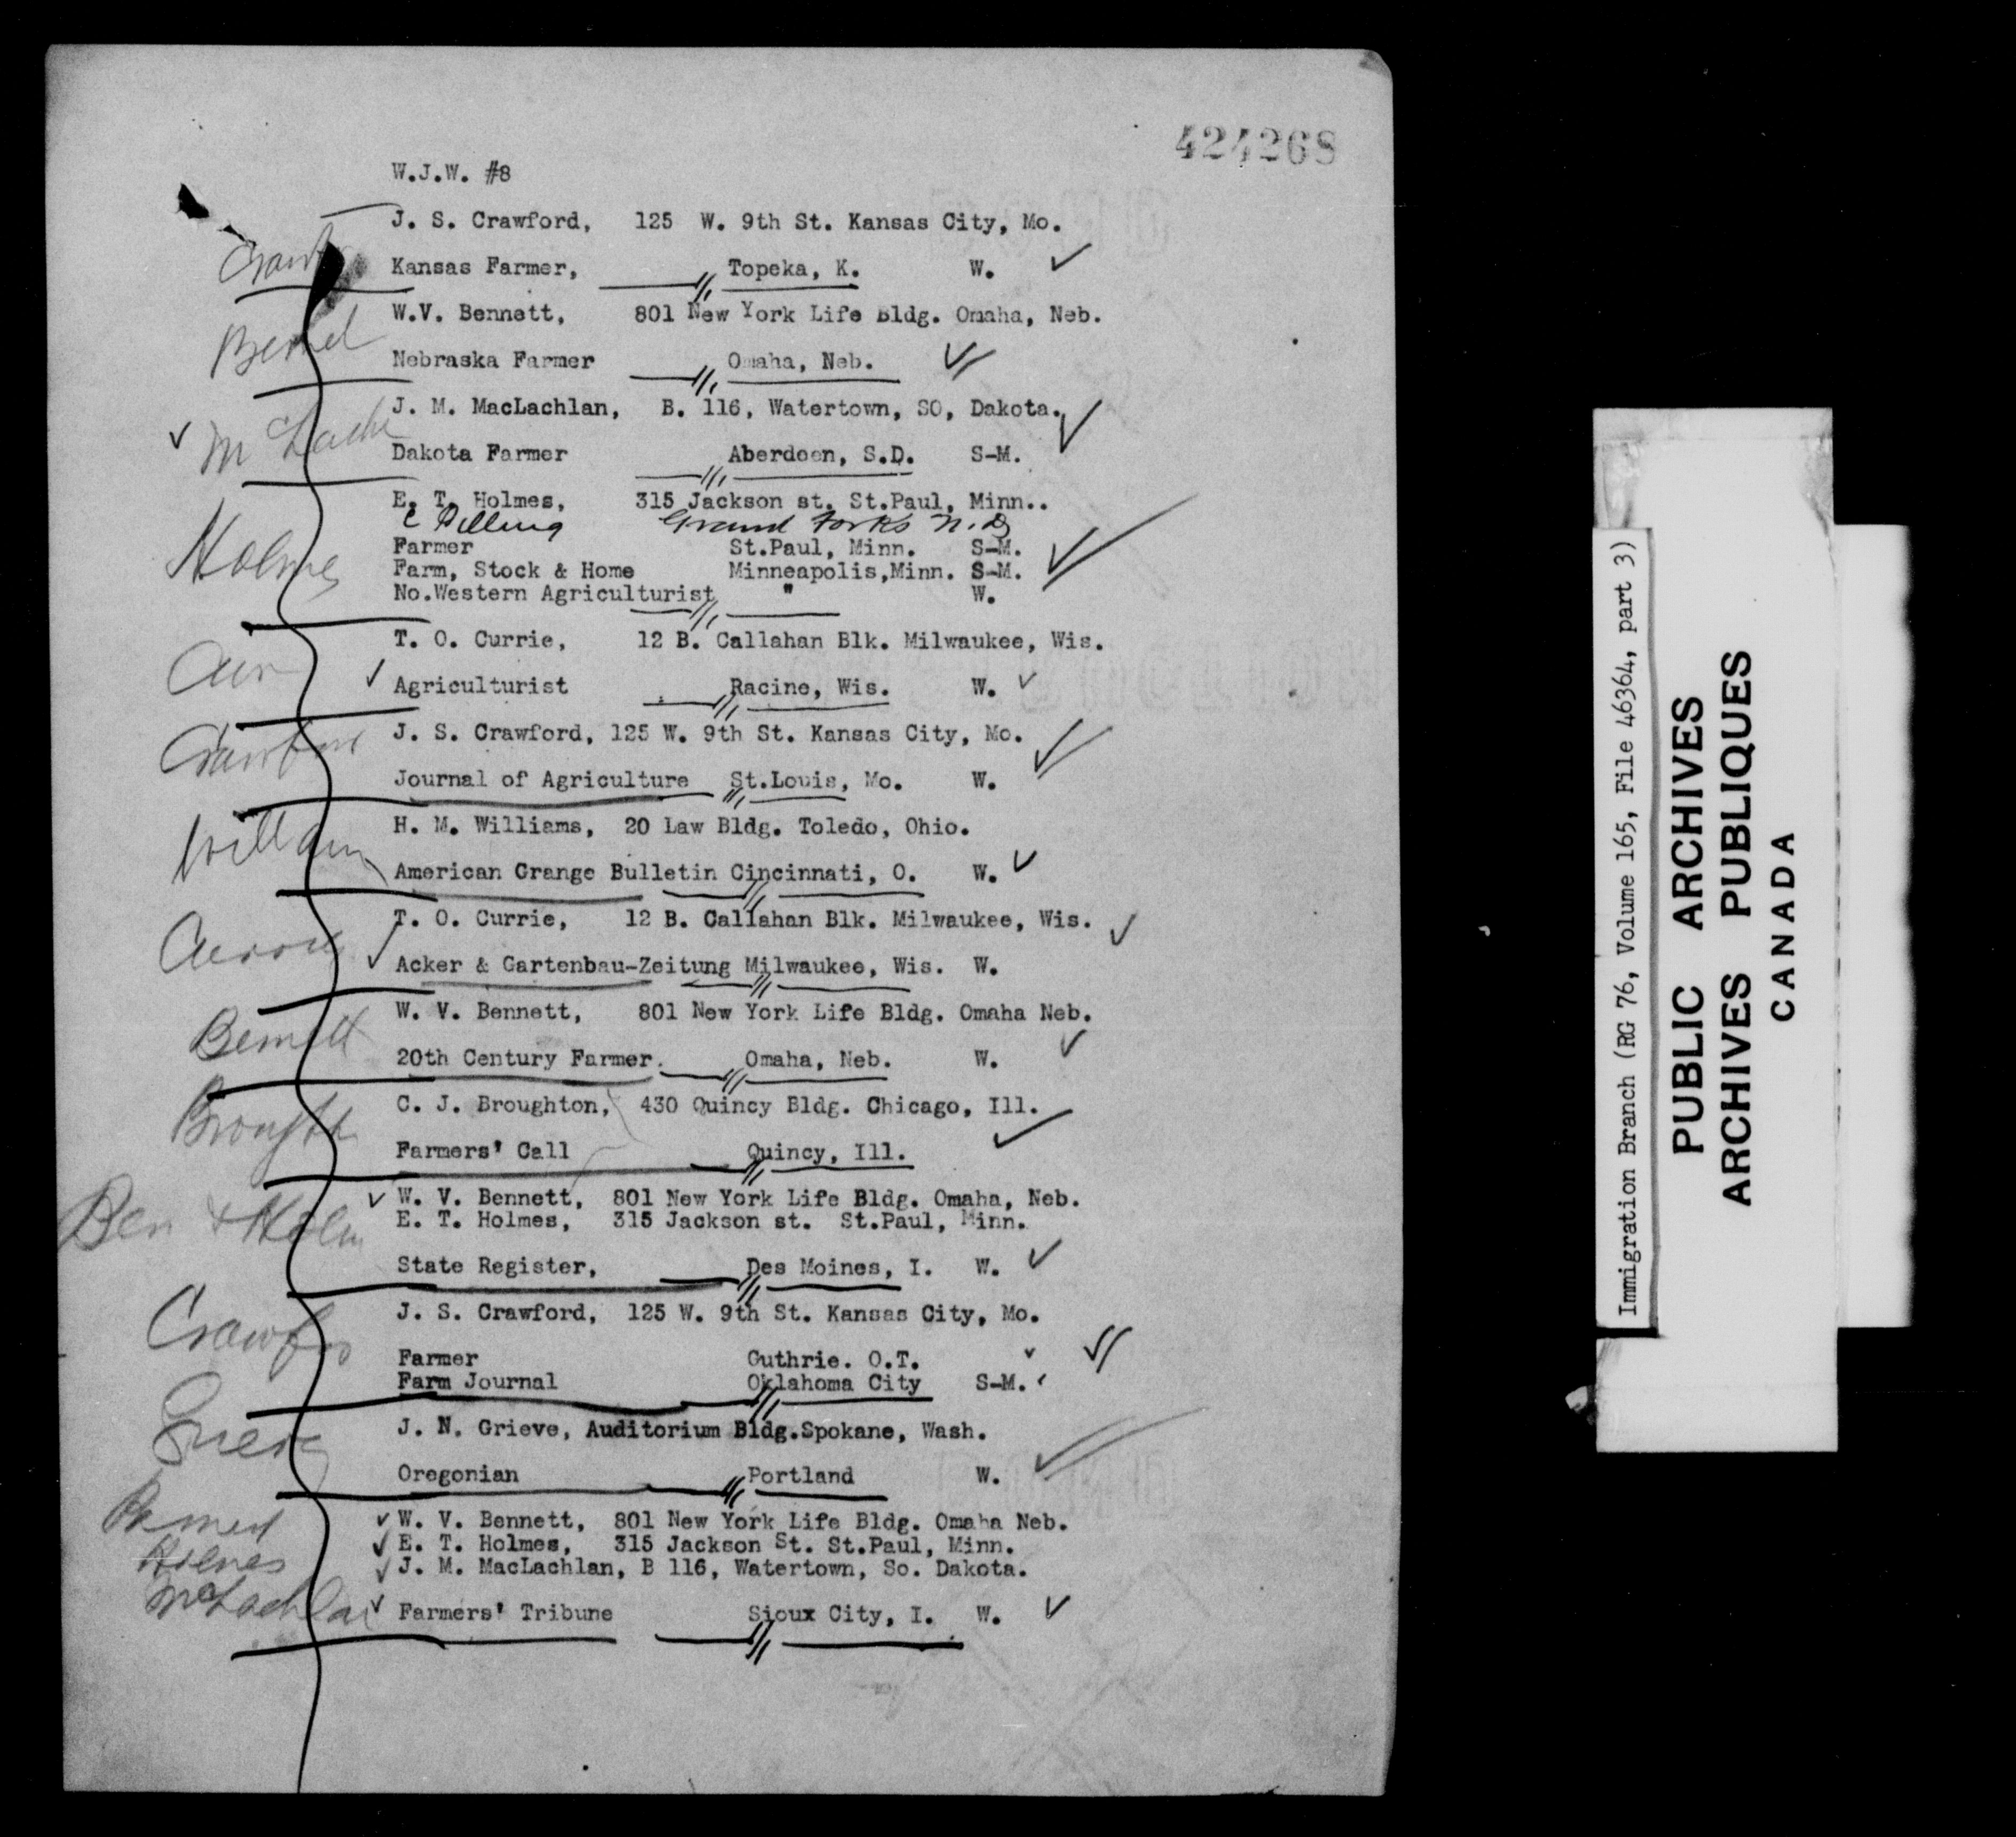 424268
W.J.W. #8
J. S. Crawford, 125 W. 9th St. Kansas City, Mo.
Kansas Farmer, Topeka, K. W.
W.V. Bennett, 801 New York Life Bldg. Omaha, Neb.
Nebraska Farmer Omaha, Neb.
J. M. MacLachlan, B. 116, Watertown, SO, Dakota.
Dakota Farmer Aberdeen, S.D. S-M.
E. T. Holmes, 315 Jackson st. St.Paul, Minn..
C Pilling Grand Forks N.D
Holmes
Farmer St.Paul, Minn. S-M.
Farm, Stock & Home Minneapolis,Minn. S-M.
No.Western Agriculturist " W.
T. O. Currie, 12 B. Callahan Blk. Milwaukee, Wis.
Agriculturist Racine, Wis. W.
J. S. Crawford, 125 W. 9th St. Kansas City, Mo.
Crawford
Journal of Agriculture St.Louis, Mo. W.
H. M. Williams, 20 Law Bldg. Toledo, Ohio.
William
American Grange Bulletin Cincinnati, O. W.
T. O. Currie, 12 B. Callahan Blk. Milwaukee, Wis.
Acker & Gartenbau-Zeitung Milwaukee, Wis. W.
W. V. Bennett, 801 New York Life Bldg. Omaha Neb.
Bennett
20th Century Farmer. Omaha, Neb. W.
C. J. Broughton, 430 Quincy Bldg. Chicago, Ill.
Farmers' Call Quincy, Ill.
W. V. Bennett, 801 New York Life Bldg. Omaha, Neb.
E. T. Holmes, 315 Jackson st. St.Paul, Minn.
Ben & Holm
State Register, Des Moines, I. W.
J. S. Crawford, 125 W. 9th St. Kansas City, Mo.
Farmer Guthrie. O.T.
Farm Journal Oklahoma City S-M.
J. N. Grieve, Auditorium Bldg.Spokane, Wash.
Oregonian Portland W.
W. V. Bennett, 801 New York Life Bldg. Omaha Neb.
E. T. Holmes, 315 Jackson St. St.Paul, Minn.
Holmes
J. M. MacLachlan, B 116, Watertown, So. Dakota.
McLachlan
Farmers' Tribune Sioux City, I. W.
Immigration Branch (RG 76, Volume 165, File 46364, part 3)
PUBLIC ARCHIVES
ARCHIVES PUBLIQUES
CANADA